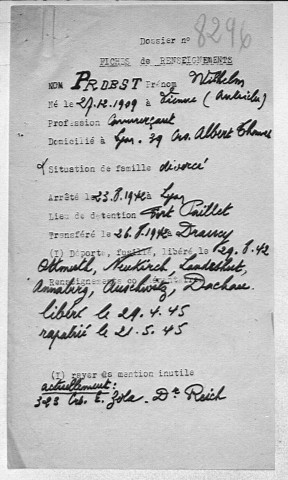 Dossier n° 8296
FICHES de RENSEIGNEMENTS
NOM PROBST Prénom Wilhelm
Né le 27.12.1909 à Vienne (Autriche)
Profession commerçant
Domicilié à Lyon. 39 Crs. Albert Thomas
Situation de famille divorcé
Arrêté le 23.8.1942 à Lyon
Lieu de detention Fort Paillet
Transféré le 26.8.1942 à Drancy
(I) Déporté, fusillé, libéré le 29.8.42
Ottmuth, Neukirch, Landeshut,
Renseignements
Annaberg, Auschwitz, Dachau.
libéré le 29.4.45
rapatrié le 21.5.45
(I) rayer la mention inutile
actuellement:
323 Crs. E. Zola. Dr Reich